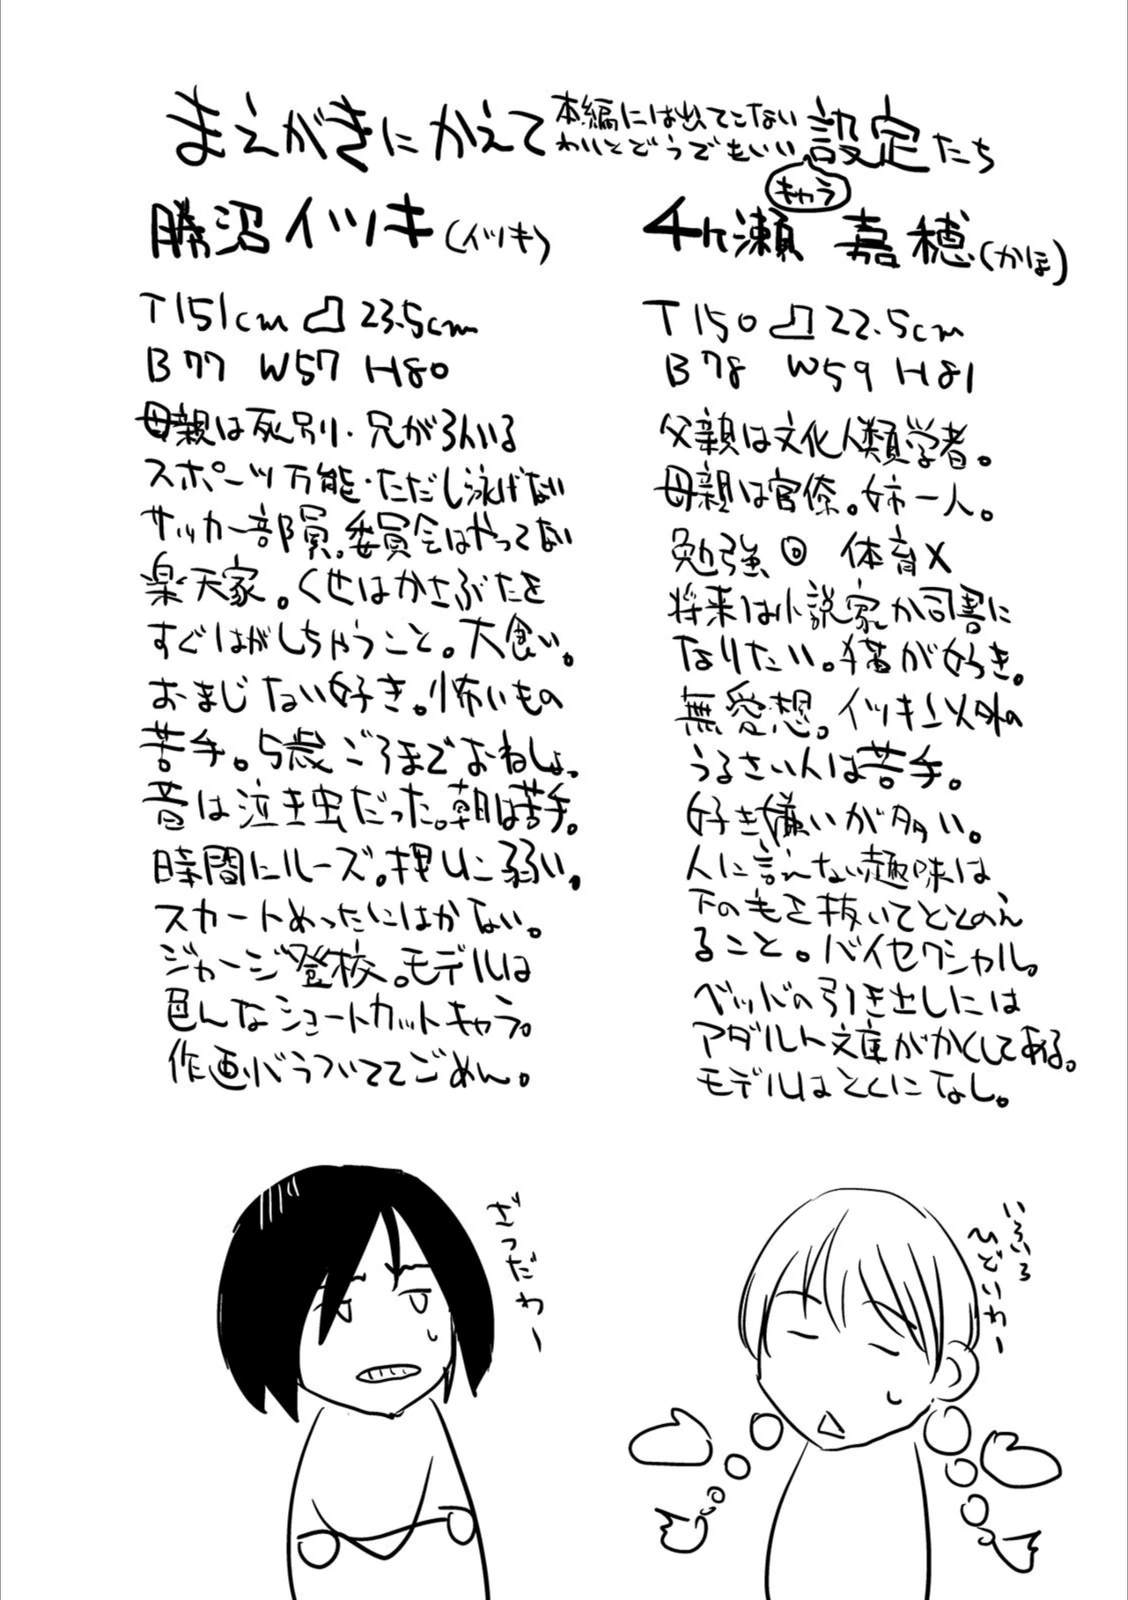 まえがきにかえて本編には出てこない
わりとどうでもいい
キャラ
設定たち
勝沼イツキ(イツキ)
T151cm 23.5cm
B77 W57 H80
母親は死別り・兄が3人いる
スポーツ万能・ただし泳げない
サッカー部員。委員会はやってない
楽天家。くせはかさぶたを
すぐはがしちゃうこと。大食い。
おまじない好き。怖いもの
苦手。5歳ごろまでおねしょ。
昔は泣き虫だった。朝は苦手。
時間にルーズ。押しに弱い。
スカートめったにはかない。
ジャージ登校。モデルは
色んなショートカットキャラ。
作画バラついててごめん。
千ヶ瀬 嘉穂(かほ)
T150 22.5cm
B78 W59 H81
父親は文化人類学者。
母親は官僚。姉一人。
勉強◎ 体育×
将来は小説家か司書に
なりたい。猫が好き。
無愛想。イツキ以外の
うるさい人は苦手。
好き嫌いが多い。
人に言えない趣味は
下の毛を抜いてととのえ
ること。バイセクシャル。
ベッドの引き出しには
アダルト文庫がかくしてある。
モデルはとくになし。
ざつだわー
いろいろ
ひどいわー